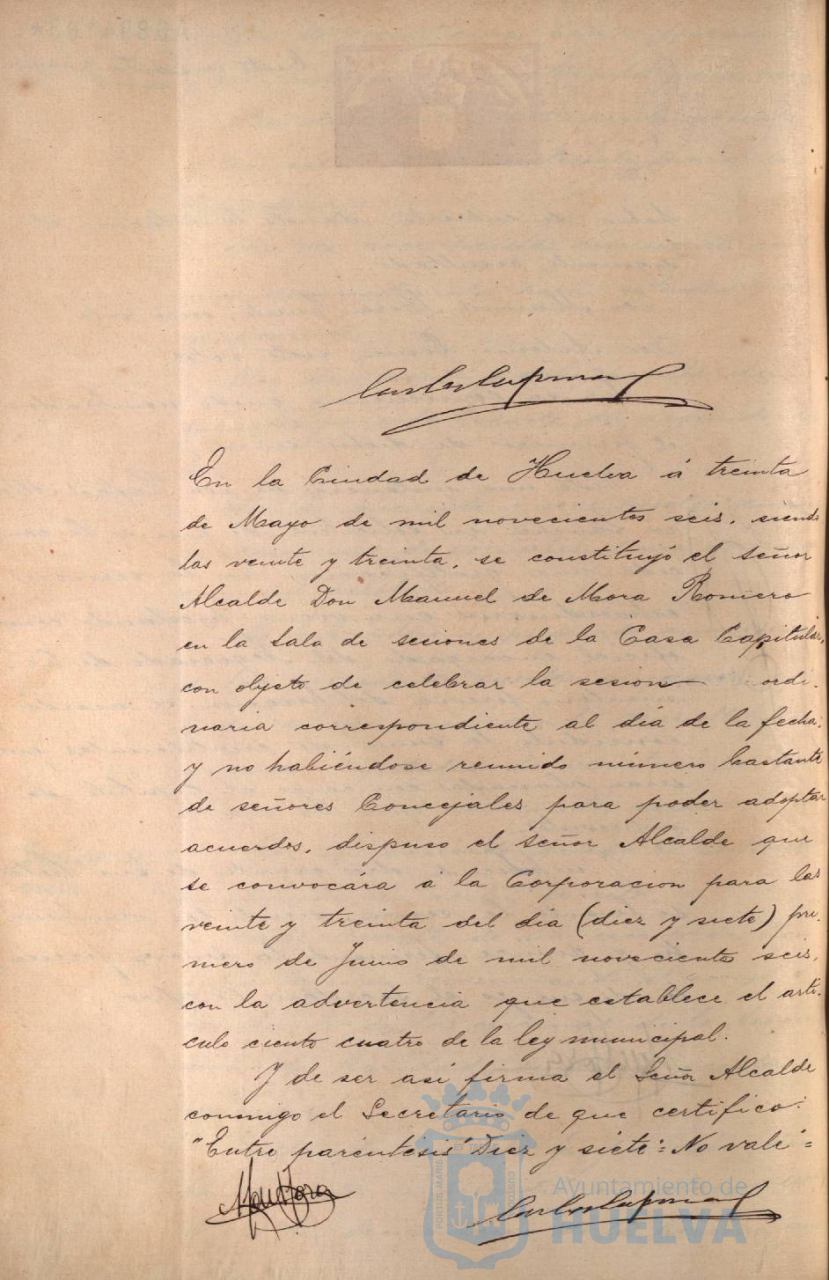 En la Ciudad de Huelva á treinta
de Mayo de mil novecientos seis, siendo
las veinte y treinta, se constituyó el señor
Alcalde Don Manuel de Mora Romero
en la Sala de sesiones de la Casa Capitular,
con objeto de celebrar la sesion ordi-
naria correspondiente al día de la fecha,
y no habiéndose reunido número bastante
de señores Concejales para poder adoptar
acuerdos, dispuso el señor Alcalde que
se convocára á la Corporacion para las
veinte y treinta del dia (diez y siete) pri-
mero de Junio de mil novecientos seis,
con la advertencia que establece el artí-
culo ciento cuatro de la ley municipal.
Y de ser así firma el Señor Alcalde
conmigo el Secretario de que certifico.
"Entre paréntesis" Diez y siete "=No vale"=
Ayuntamiento de
HUELVA